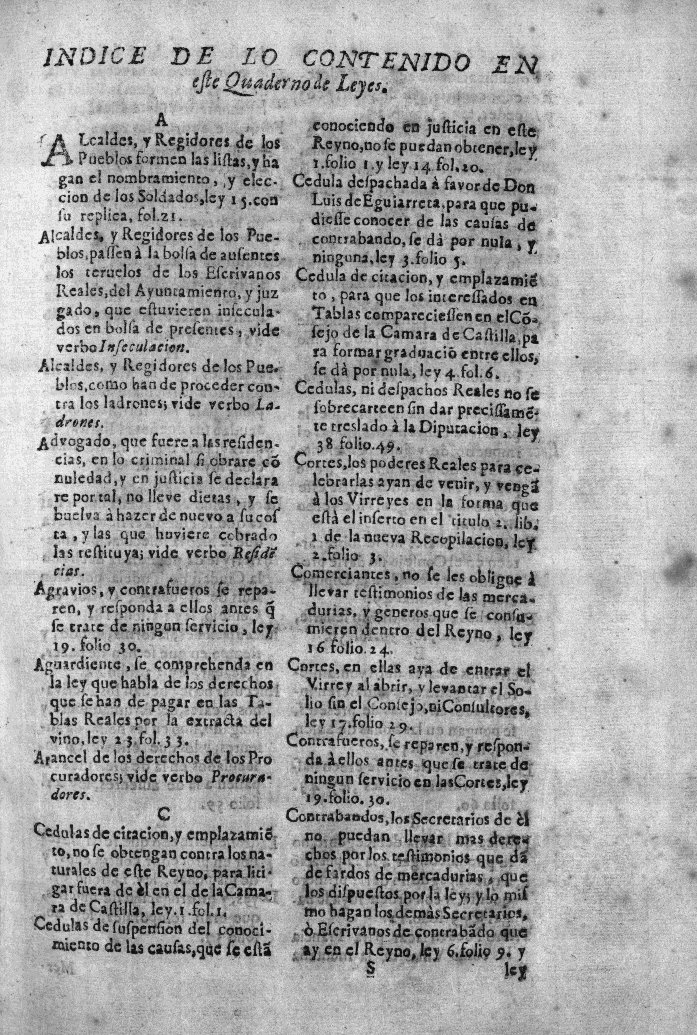 INDICE DE LO CONTENIDO EN
este Quaderno de Leyes.
A
ALcaldes, y Regidores de los
Pueblos formen las listas, y ha
gan el nombramiento, y elec-
cion de los Soldados, ley 15. con
su replica, fol. 21.
Alcaldes, y Regidores de los Pue-
blos, passen à la bolsa de ausentes
los teruelos de los Escrivanos
Reales, del Ayuntamiento, y juz
gado, que estuvieren insecula-
dos en bolsa de presentes, vide
verbo Inseculacion.
Alcaldes, y Regidores de los Pue-
blos, como han de proceder con-
tra los ladrones; vide verbo La-
drones.
Advogado, que fuere a las residen-
cias, en lo criminal si obrare cō
nuledad, y en justicia se declara
re por tal, no lleve dietas, y se
buelva à hazer de nuevo a su cos
ta, y las que huviere cobrado
las restituya; vide verbo Residē
cias.
Agravios, y contrafueros se repa-
ren, y responda a ellos antes q̃
se trate de ningun servicio, ley
19. folio 30.
Aguardiente, se comprehenda en
la ley que habla de los derechos
que se han de pagar en las Ta-
blas Reales por la extracta del
vino, ley 23. fol. 33.
Arancel de los derechos de los Pro
curadores; vide verbo Procura-
dores.
C
Cedulas de citacion, y emplazamiē
to, no se obtengan contra los na-
turales de este Reyno, para liti-
gar fuera de èl en el de la Cama-
ra de Castilla, ley. 1. fol. 1.
Cedulas de suspension del conoci-
miento de las causas, que se està
conociendo en justicia en este
Reyno, no se puedan obtener, ley
1. folio 1. y ley 14. fol. 20.
Cedula despachada à favor de Don
Luis de Eguiarreta, para que pu-
diesse conocer de las causas de
contrabando, se dà por nula, y
ninguna, ley 3. folio 5.
Cedula de citacion, y emplazamiē
to, para que los interessados en
Tablas compareciessen en el Cō-
sejo de la Camara de Castilla, pa
ra formar graduaciō entre ellos,
se dà por nula, ley 4. fol. 6.
Cedulas, ni despachos Reales no se
sobrecarteen sin dar precissamē-
te treslado à la Diputacion, ley
38. folio. 49.
Cortes, los poderes Reales para ce-
lebrarlas ayan de venir, y vengā
à los Virreyes en la forma que
està el inserto en el titulo 2. lib.
1 de la nueva Recopilacion, ley
2. folio 3.
Comerciantes, no se les obligue à
llevar testimonios de las merca-
durias, y generos que se consu-
mieren dentro del Reyno, ley
16 folio. 24.
Cortes, en ellas aya de entrar el
Virrey al abrir, y levantar el So-
lio sin el Consejo, ni Consultores,
ley 17. folio 29.
Contrafueros, se reparen, y respon-
da à ellos antes que se trate de
ningun servicio en las Cortes, ley
19. folio. 30.
Contrabandos, los Secretarios de èl
no puedan llevar mas dere-
chos por los testimonios que dā
de fardos de mercadurias, que
los dispuestos por la ley; y lo mis
mo hagan los demàs Secretarios,
ò Escrivanos de contrabādo que
ay en el Reyno, ley 6. folio 9. y
S
ley